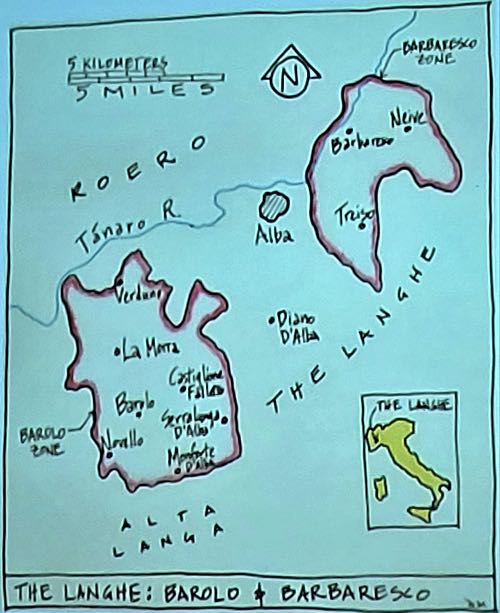 5 KILOMETERS
5 MILES
N
BARBARESCO
ZONE
Neive
Barbaresco
ROERO
Tánaro R.
Alba
Treiso
Verduno
Diano
D'Alba
THE LANGHE
La Morra
Castiglione
Falletto
Barolo
Serralunga
D'Alba
BAROLO
ZONE
Novello
Monforte
D'Alba
THE LANGHE
ALTA
LANGA
THE LANGHE: BAROLO & BARBARESCO